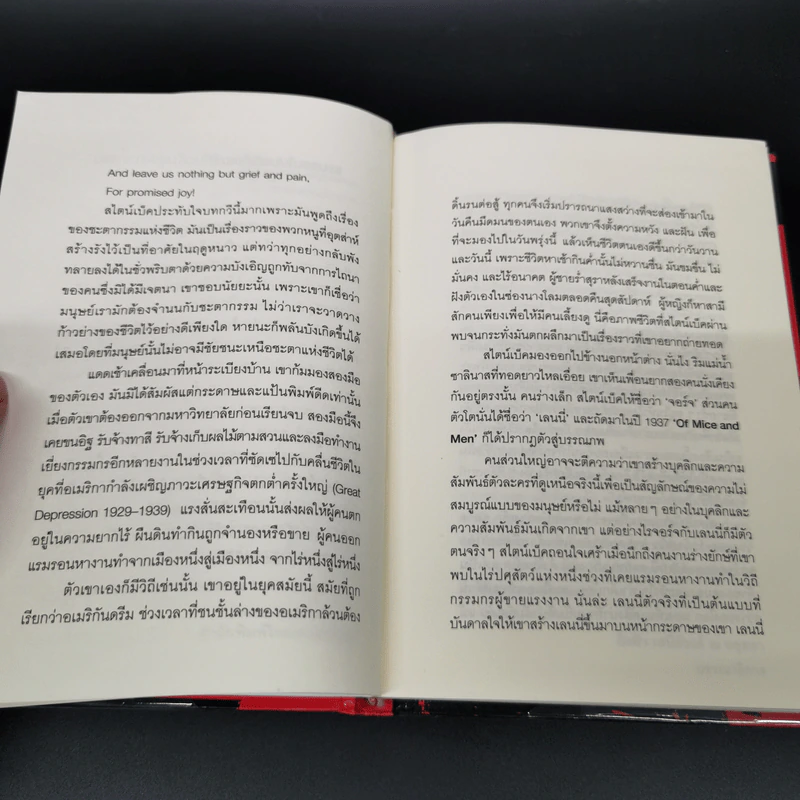 And leave us nothing but grief and pain,
For promised joy!
สไตน์เบ็คประทับใจบทกวีนี้มากเพราะมันพูดถึงเรื่อง
ของชะตากรรมแห่งชีวิต มันเป็นเรื่องราวของพวกหนูที่อุตส่าห์
สร้างรังไว้เป็นที่อาศัยในฤดูหนาว แต่ทว่าทุกอย่างกลับพัง
ทลายลงได้ในชั่วพริบตาด้วยความบังเอิญถูกทับจากการไถนา
ของคนซึ่งมิได้มีเจตนา เขาชอบนัยยะนั้น เพราะเขาก็เชื่อว่า
มนุษย์เรามักต้องจำนนกับชะตากรรม ไม่ว่าเราจะวาดวาง
ก้าวย่างของชีวิตไว้อย่างดีเพียงใด หายนะก็พลันบังเกิดขึ้นได้
เสมอโดยที่มนุษย์นั้นไม่อาจมีชัยชนะเหนือชะตาแห่งชีวิตได้
แดดเช้าเคลื่อนมาที่หน้าระเบียงบ้าน เขาก้มมองสองมือ
ของตัวเอง มันมิได้สัมผัสแต่กระดาษและแป้นพิมพ์ดีดเท่านั้น
เมื่อตัวเขาต้องออกจากมหาวิทยาลัยก่อนเรียนจบ สองมือนี้จึง
เคยขนอิฐ รับจ้างทาสี รับจ้างเก็บผลไม้ตามสวนและลงมือทำงาน
เยี่ยงกรรมกรอีกหลายงานในช่วงเวลาที่ซัดเซไปกับคลื่นชีวิตใน
ยุคที่อเมริกากำลังเผชิญภาวะเศรษฐกิจตกต่ำครั้งใหญ่ (Great
Depression 1929-1939) แรงสั่นสะเทือนนั้นส่งผลให้ผู้คนตก
อยู่ในความยากไร้ ผืนดินทำกินถูกจำนองหรือขาย ผู้คนออก
แรมรอนหางานทำจากเมืองหนึ่งสู่เมืองหนึ่ง จากไร่หนึ่งสู่ไร่หนึ่ง
ตัวเขาเองก็มีวิถีเช่นนั้น เขาอยู่ในยุคสมัยนี้ สมัยที่ถูก
เรียกว่าอเมริกันดรีม ช่วงเวลาที่ชนชั้นล่างของอเมริกาล้วนต้อง
ดิ้นรนต่อสู้ ทุกคนจึงเริ่มปรารถนาแสงสว่างที่จะส่องเข้ามาใน
วันคืนมืดมนของตนเอง พวกเขาจึงตั้งความหวัง และฝัน เพื่อ
ที่จะมองไปในวันพรุ่งนี้ แล้วเห็นชีวิตตนเองดีขึ้นกว่าวันวาน
และวันนี้ เพราะชีวิตหาเช้ากินค่ำนั้นไม่หวานชื่น มันขมขื่น ไม่
มั่นคง และไร้อนาคต ผู้ชายร่ำสุราหลังเสร็จงานในตอนค่ำและ
ฝังตัวเองในซ่องนางโลมตลอดคืนสุดสัปดาห์ ผู้หญิงก็หาสามี
สักคนเพียงเพื่อให้มีคนเลี้ยงดู นี่คือภาพชีวิตที่สไตน์เบ็คผ่าน
พบจนกระทั่งมันตกผลึกมาเป็นเรื่องราวที่เขาอยากถ่ายทอด
สไตน์เบ็คมองออกไปข้างนอกหน้าต่าง นั่นไง ริมแม่น้ำ
ซาลินาสที่ทอดยาวไหลเอื่อย เขาเห็นเพื่อนยากสองคนนั่งเคียง
กันอยู่ตรงนั้น คนร่างเล็ก สไตน์เบ็คให้ชื่อว่า ‘จอร์จ’ ส่วนคน
ตัวโตนั่นได้ชื่อว่า ‘เลนนี่’ และถัดมาในปี 1937 ‘Of Mice and
Men’ ก็ได้ปรากฏตัวสู่บรรณภพ
คนส่วนใหญ่อาจจะตีความว่าเขาสร้างบุคลิกและความ
สัมพันธ์ตัวละครที่ดูเหนือจริงนี้เพื่อเป็นสัญลักษณ์ของความไม่
สมบูรณ์แบบของมนุษย์หรือไม่ แม้หลายๆ อย่างในบุคลิกและ
ความสัมพันธ์มันเกิดจากเขา แต่อย่างไรจอร์จกับเลนนี่ก็มีตัว
ตนจริงๆ สไตน์เบ็คถอนใจเศร้าเมื่อนึกถึงคนงานร่างยักษ์ที่เขา
พบในไร่ปศุสัตว์แห่งหนึ่งช่วงที่เคยแรมรอนหางานทำในวิถี
กรรมกรผู้ขายแรงงาน นั่นล่ะ เลนนี่ตัวจริงที่เป็นต้นแบบที่
บันดาลใจให้เขาสร้างเลนนี่ขึ้นมาบนหน้ากระดาษของเขา เลนนี่